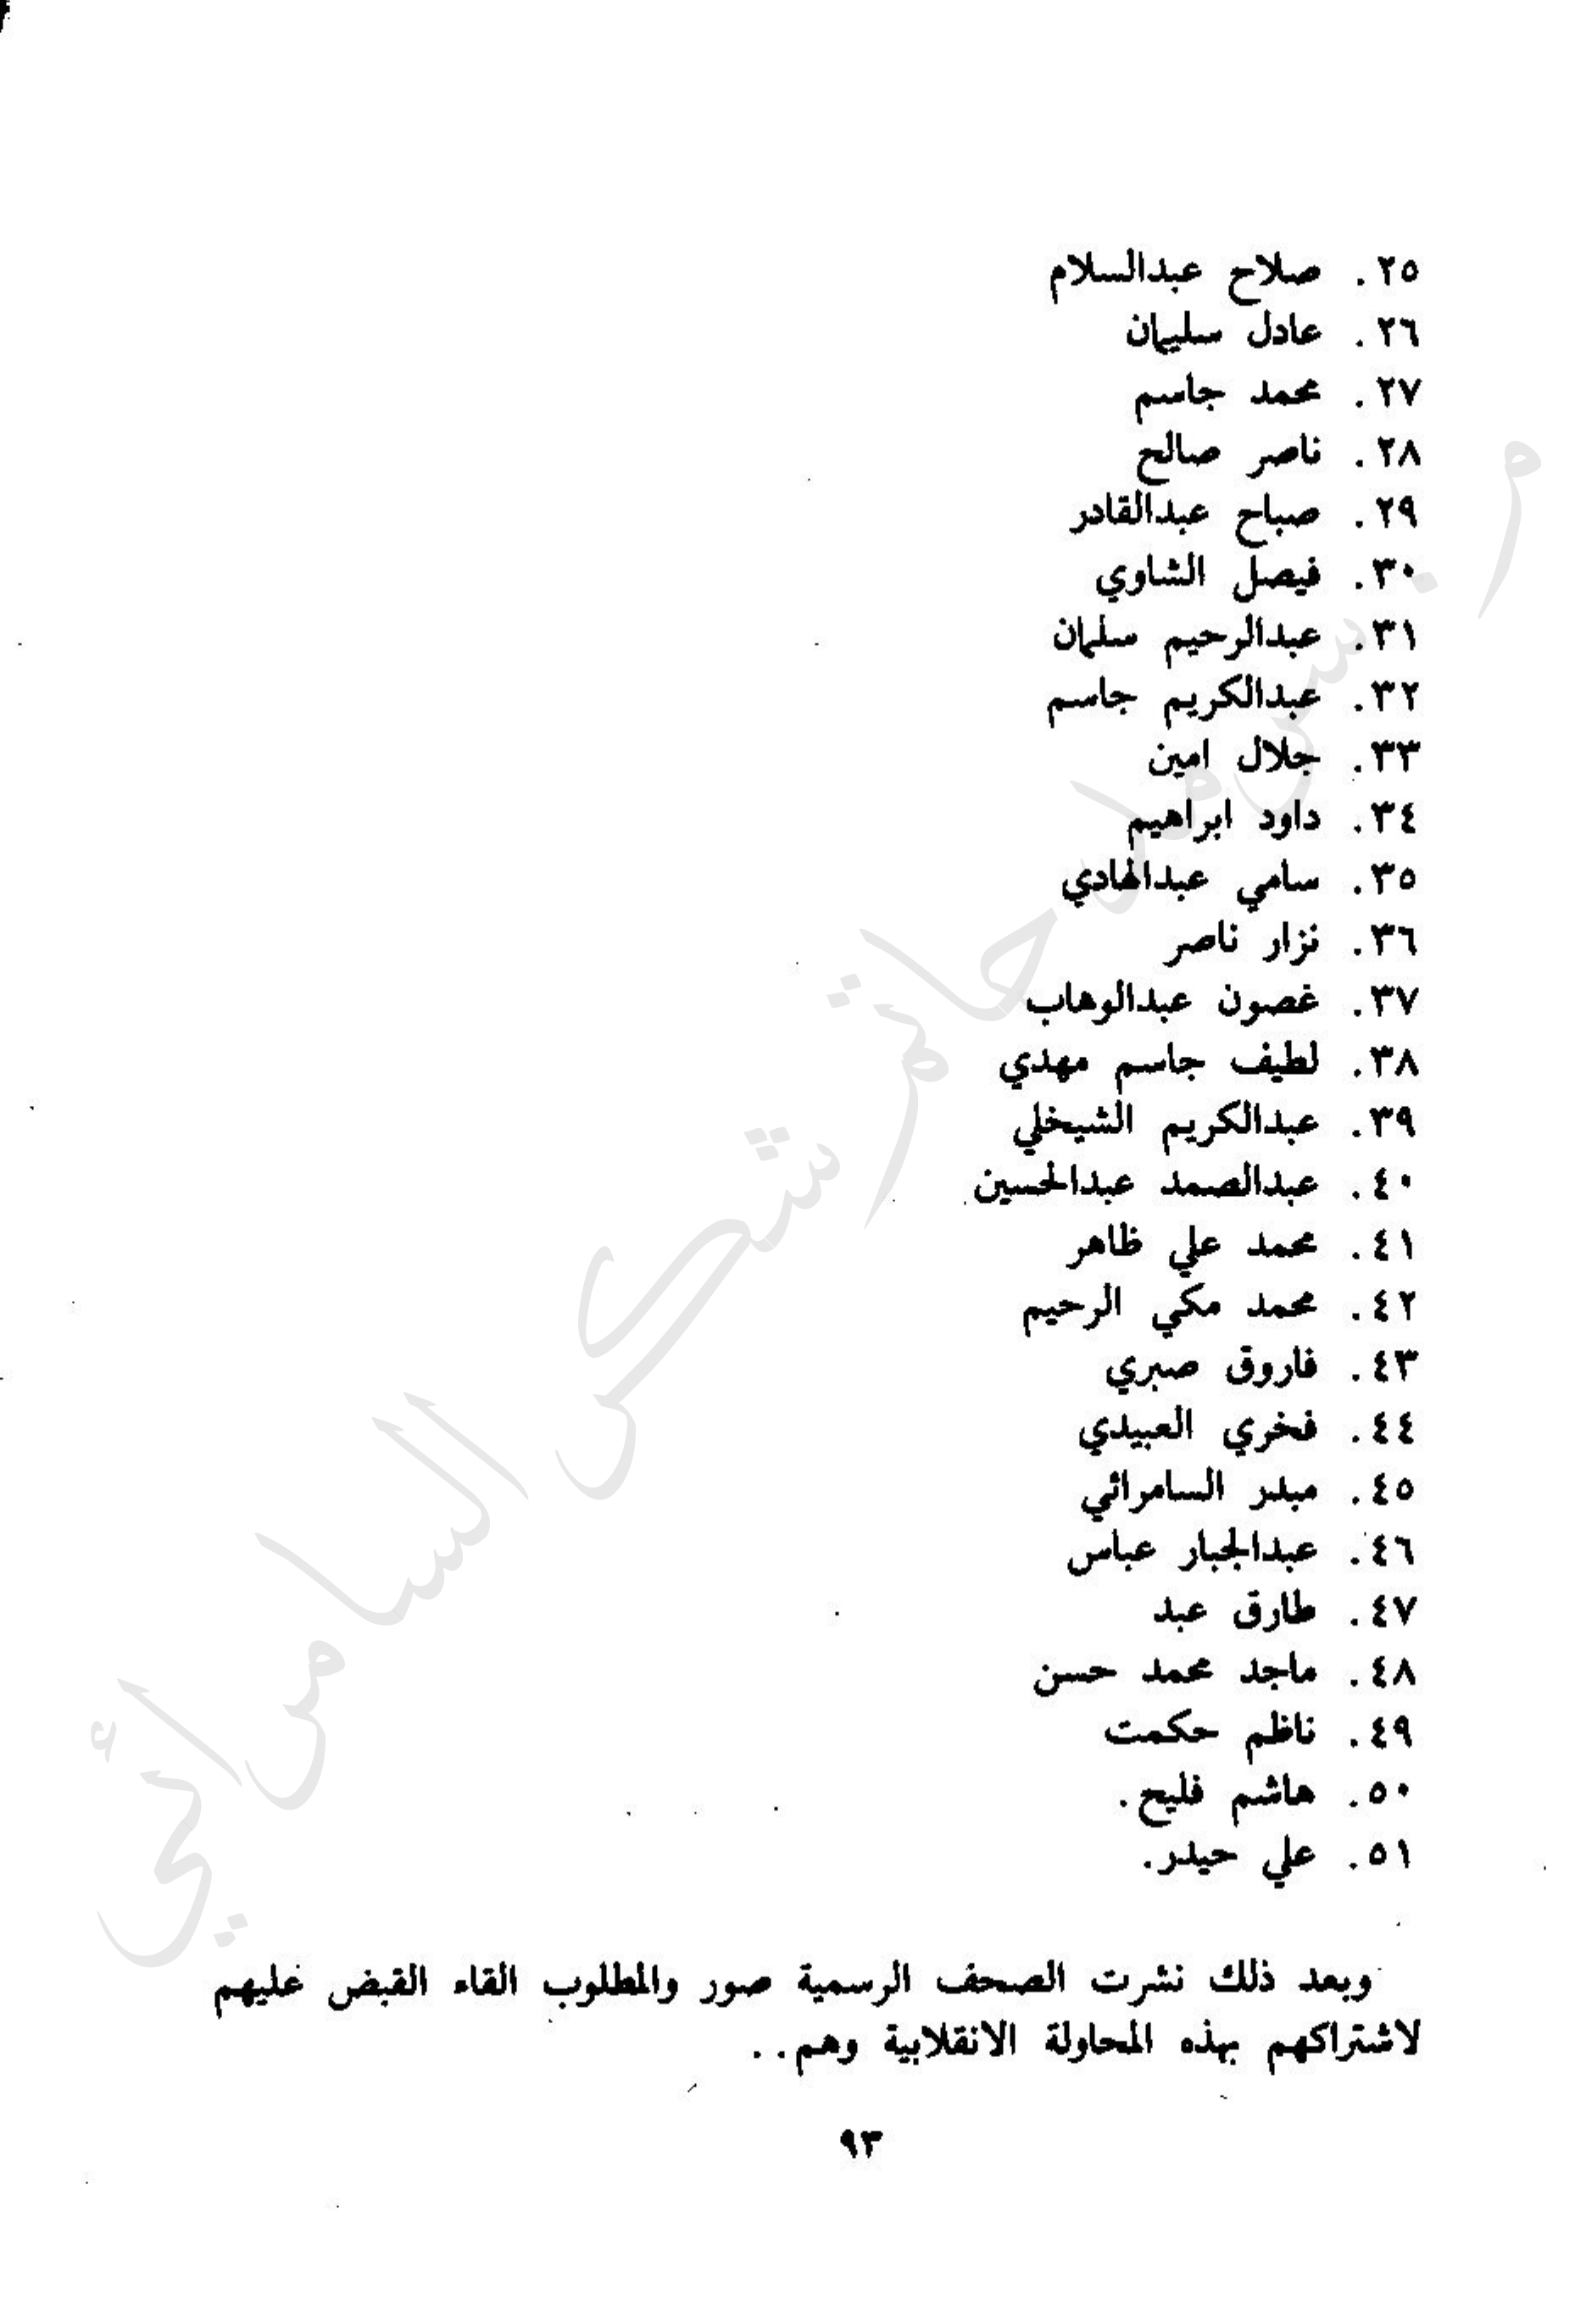 ٢٥. صلاح عبدالسلام
٢٦. عادل سليمان
٢٧. محمد جاسم
٢٨. ناصر صالح
٢٩. صباح عبدالقادر
٣٠. فيصل الشاوي
٣١. عبدالرحيم سلمان
٣٢. عبدالكريم جاسم
٣٣. جلال امين
٣٤. داود ابراهيم
٣٥. سامي عبدالهادي
٣٦. نزار ناصر
٣٧. غصون عبدالوهاب
٣٨. لطيف جاسم مهدي
٣٩. عبدالكريم الشيخلي
٤٠. عبدالصمد عبدالحسين
٤١. محمد علي ظاهر
٤٢. محمد مكي الرحيم
٤٣. فاروق صبري
٤٤. فخري العبيدي
٤٥. مبدر السامرائي
٤٦. عبدالجبار عباس
٤٧. طارق عبد
٤٨. ماجد محمد حسن
٤٩. ناظم حكمت
٥٠. هاشم فليح.
٥١. علي حيدر.
وبعد ذلك نشرت الصحف الرسمية صور والمطلوب القاء القبض عليهم
لاشتراكهم بهذه المحاولة الانقلابية وهم..
٩٣